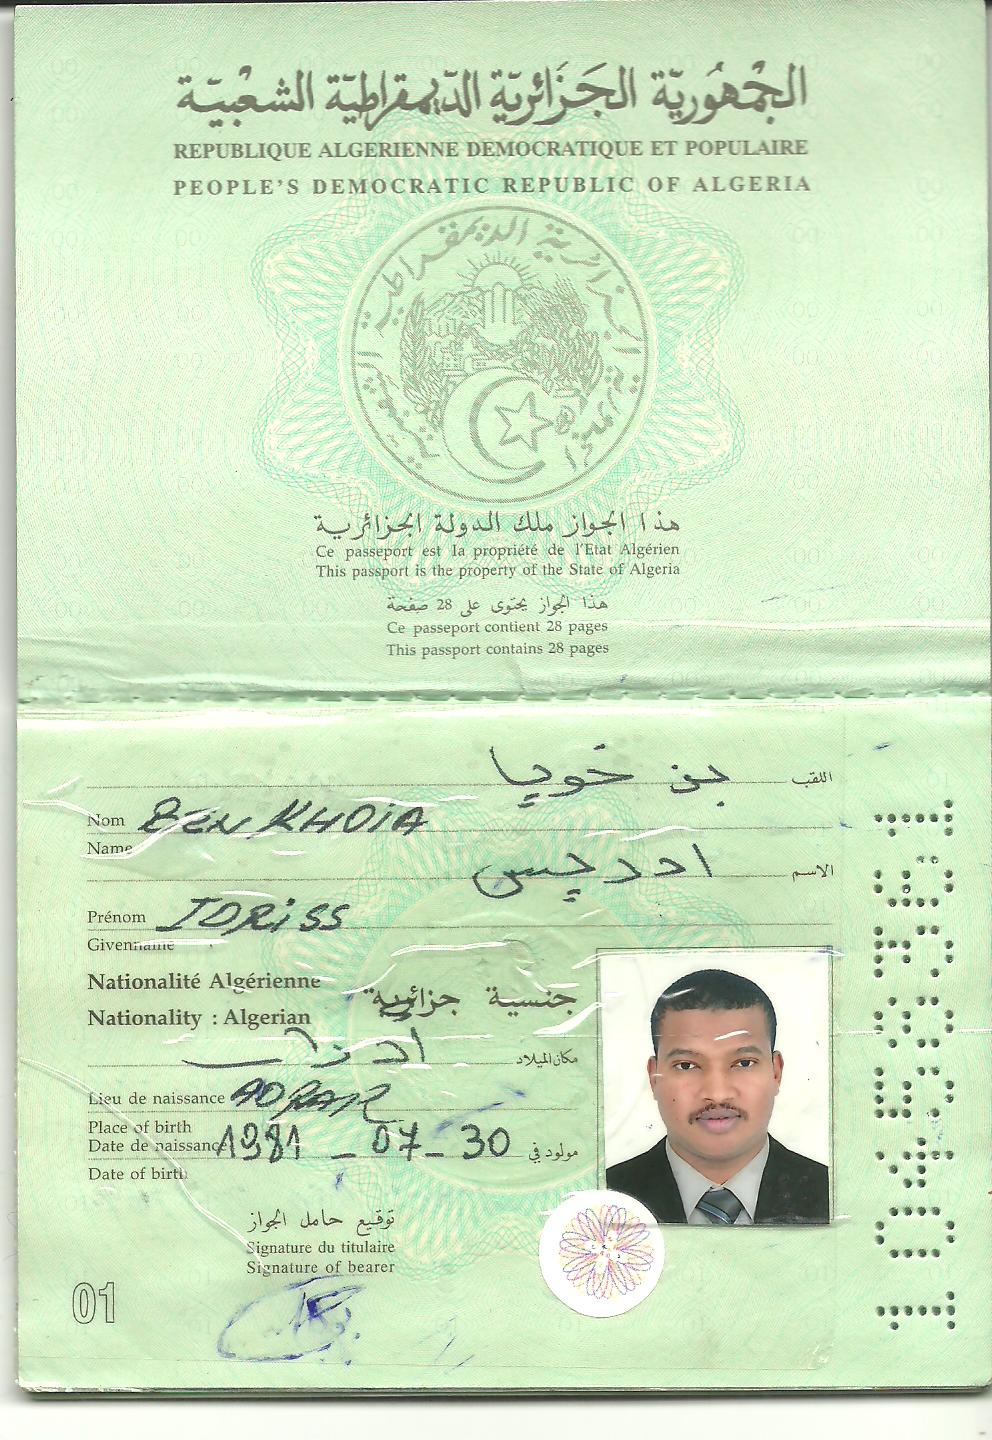 الجمهورية الجزائرية الديمقراطية الشعبية
REPUBLIQUE ALGERIENNE DEMOCRATIQUE ET POPULAIRE
PEOPLE'S DEMOCRATIC REPUBLIC OF ALGERIA
هذا الجواز ملك الدولة الجزائرية
Ce passeport est la propriété de l'Etat Algérien
This passport is the property of the State of Algeria
هذا الجواز يحتوى على 28 صفحة
Ce passeport contient 28 pages
This passport contains 28 pages
اللقب بن خويا
Nom BEN KHOIA
Name
الاسم ادريس
Prénom IDRiSS
Givenname
Nationalité Algérienne جنسية جزائرية
Nationality : Algerian
مكان الميلاد ادرار
Lieu de naissance ADRAR
Place of birth
Date de naissance 1981 - 07 - 30 مولود في
Date of birth
توقيع حامل الجواز
Signature du titulaire
Signature of bearer
01